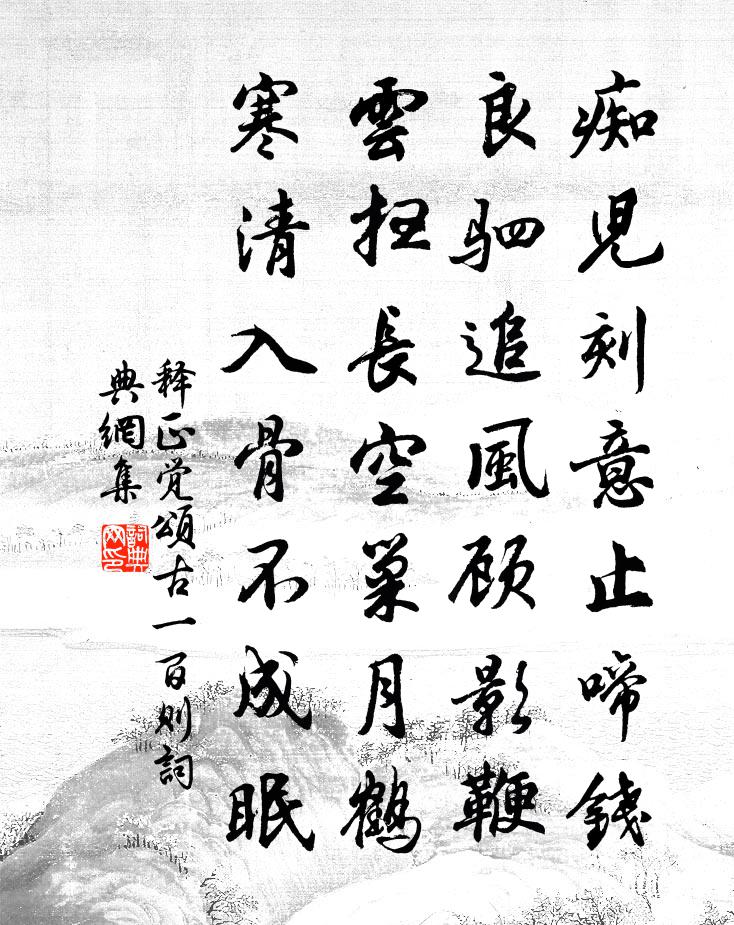 痴児刻意止啼錢
良驷追風顾影鞭
雲扫長空巢月鶴
寒清入骨不成眠
释正觉頌古一百则詞
典網集
詞典
网印